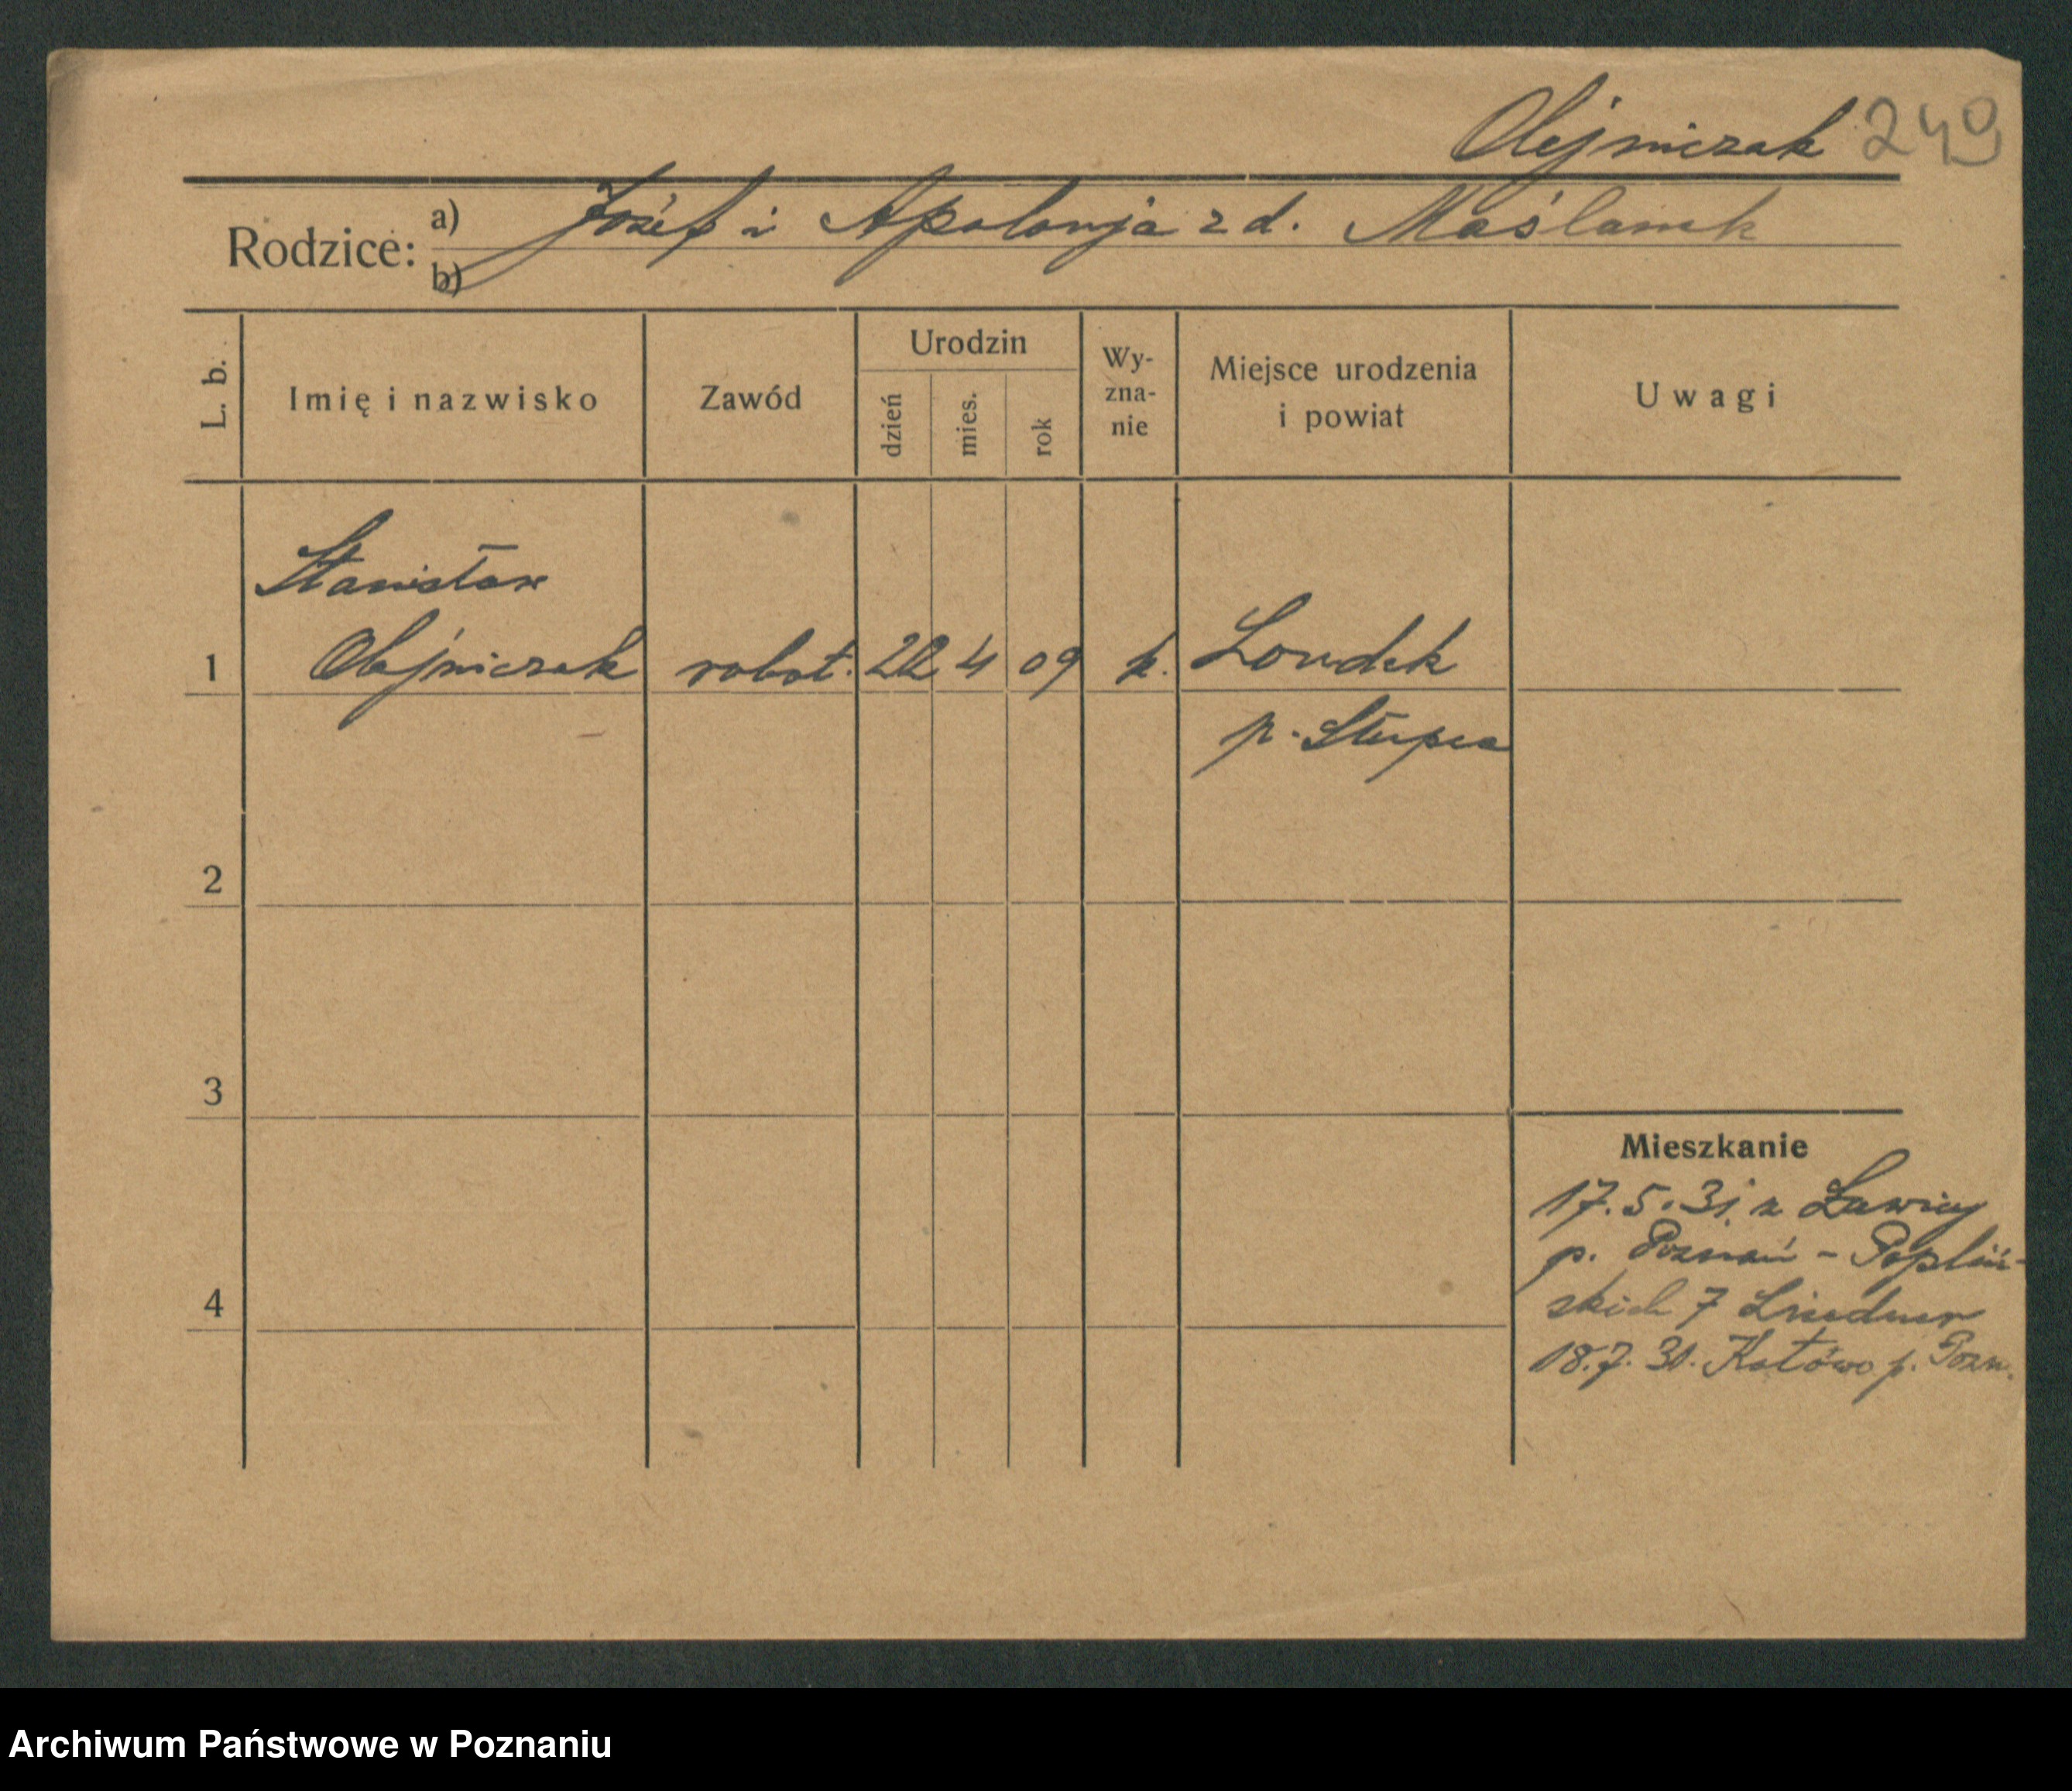 Olejniczak 249
Rodzice: a) Józef i Apolonja z d. Maślanek
b)
L. b. Imię i nazwisko Zawód Urodzin dzień mies. rok Wyzna-nie Miejsce urodzenia i powiat Uwagi
Stanisław
1 Olejniczak robot. 22 4 09 k. Londek
p. Słupca
2
3
Mieszkanie
17.5.31. z Ławicy
p. Poznań - Popliń-
4 skich 7
18.7.31. Kotowo p. Pozn.
Archiwum Państwowe w Poznaniu